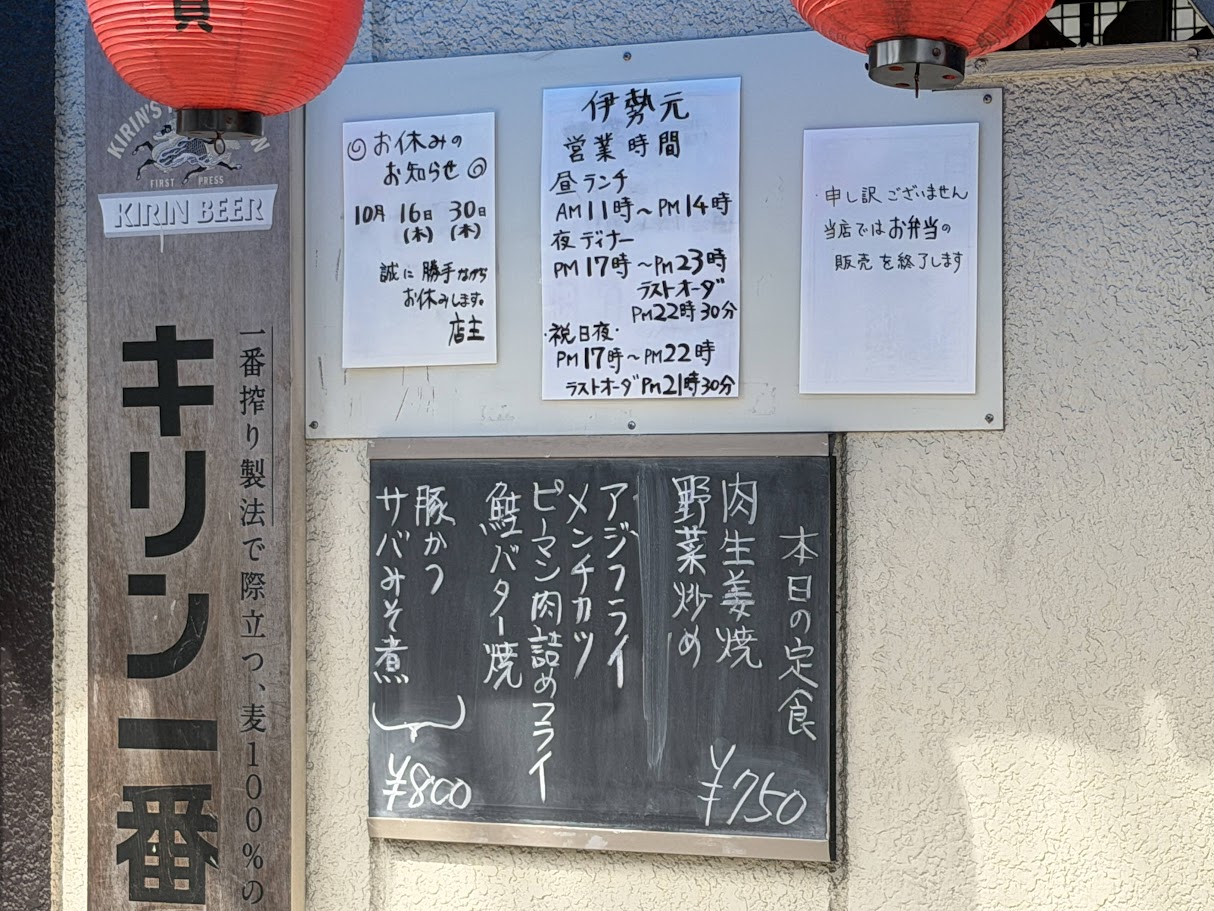 KIRIN'S
FIRST PRESS
KIRIN BEER
キリン一番
一番搾り製法で際立つ、麦100%の
◎お休みの
お知らせ◎
10月 16日 30日
(木) (木)
誠に勝手ながら
お休みします。
店主
伊勢元
営業時間
昼ランチ
AM11時～PM14時
夜ディナー
PM17時～PM23時
ラストオーダ
PM22時30分
・祝日夜・
PM17時～PM22時
ラストオーダPM21時30分
申し訳ございません
当店ではお弁当の
販売を終了します
本日の定食
肉生姜焼
野菜炒め
¥750
アジフライ
メンチカツ
ピーマン肉詰めフライ
鮭バター焼
豚かつ
サバみそ煮
¥800